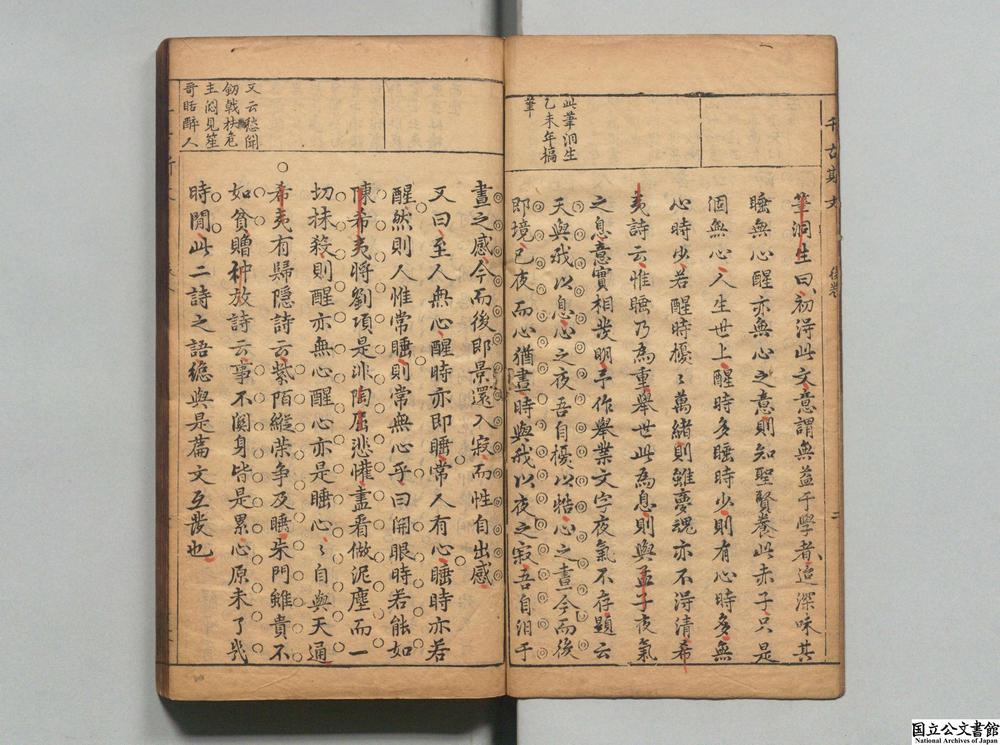 千古斯文 後卷 二
此筆洞生
乙未年搞
筆
筆洞生曰初淂此文意謂無益于學者迨深味其
睡無心醒亦無心之意則知聖賢養此赤子只是
個無心人生世上醒時多睡時少則有心時多無
心時少若醒時擾〻萬緒則雖夢魂亦不淂清希
夷詩云惟睡乃為重舉世此為息則與孟子夜氣
之息意實相發明予作舉業文字夜氣不存題云
天與我以息心之夜吾自擾以牿心之晝今而後
即境已夜而心猶晝時與我以夜之寂吾自汨于
晝之感今而後即景還入寂而性自出感
又曰至人無心醒時亦即睡常人有心睡時亦若
醒然則人惟常睡則常無心乎曰開眼時若能如
陳希夷將劉項是非陶屈悲懽盡看做泥塵而一
切抹殺則醒亦無心醒心亦是睡心〻自與天通
希夷有歸隱詩云紫陌縱荣争及睡朱門雖貴不
如貧贈种放詩云事不関身皆是累心原未了幾
時閒此二詩之語總與是篇文互發也
又云愁聞
劒戟扶危
主悶見笙
哥聒醉人
国立公文書館
National Archives of Japan